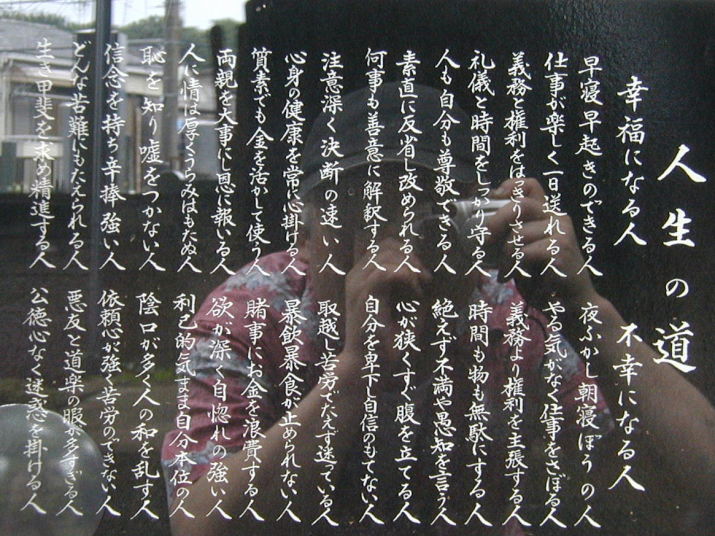 人生の道
幸福になる人
不幸になる人
早寝早起きのできる人
夜ふかし朝寝ぼうの人
仕事が楽しく一日送れる人
やる気がなく仕事をさぼる人
義務と権利をはっきりさせる人
義務より権利を主張する人
礼儀と時間をしっかり守る人
時間も物も無駄にする人
人も自分も尊敬できる人
絶えず不満や愚知を言う人
素直に反省し改められる人
心が狭くすぐ腹を立てる人
何事も善意に解釈する人
自分を卑下し自信のもてない人
注意深く決断の速い人
取越し苦労でたえず迷っている人
心身の健康を常に心掛ける人
暴飲暴食が止められない人
質素でも金を活かして使う人
賭事にお金を浪費する人
両親を大事にし恩に報いる人
欲が深く自惚れの強い人
人に情は厚くうらみはもたぬ人
利己的気まま自分本位の人
恥を知り嘘をつかない人
陰口が多く人の和を乱す人
信念を持ち辛捧強い人
依頼心が強く苦労のできない人
どんな苦難にもたえられる人
悪友と道楽の暇が多すぎる人
生き甲斐を求め精進する人
公徳心なく迷惑を掛ける人